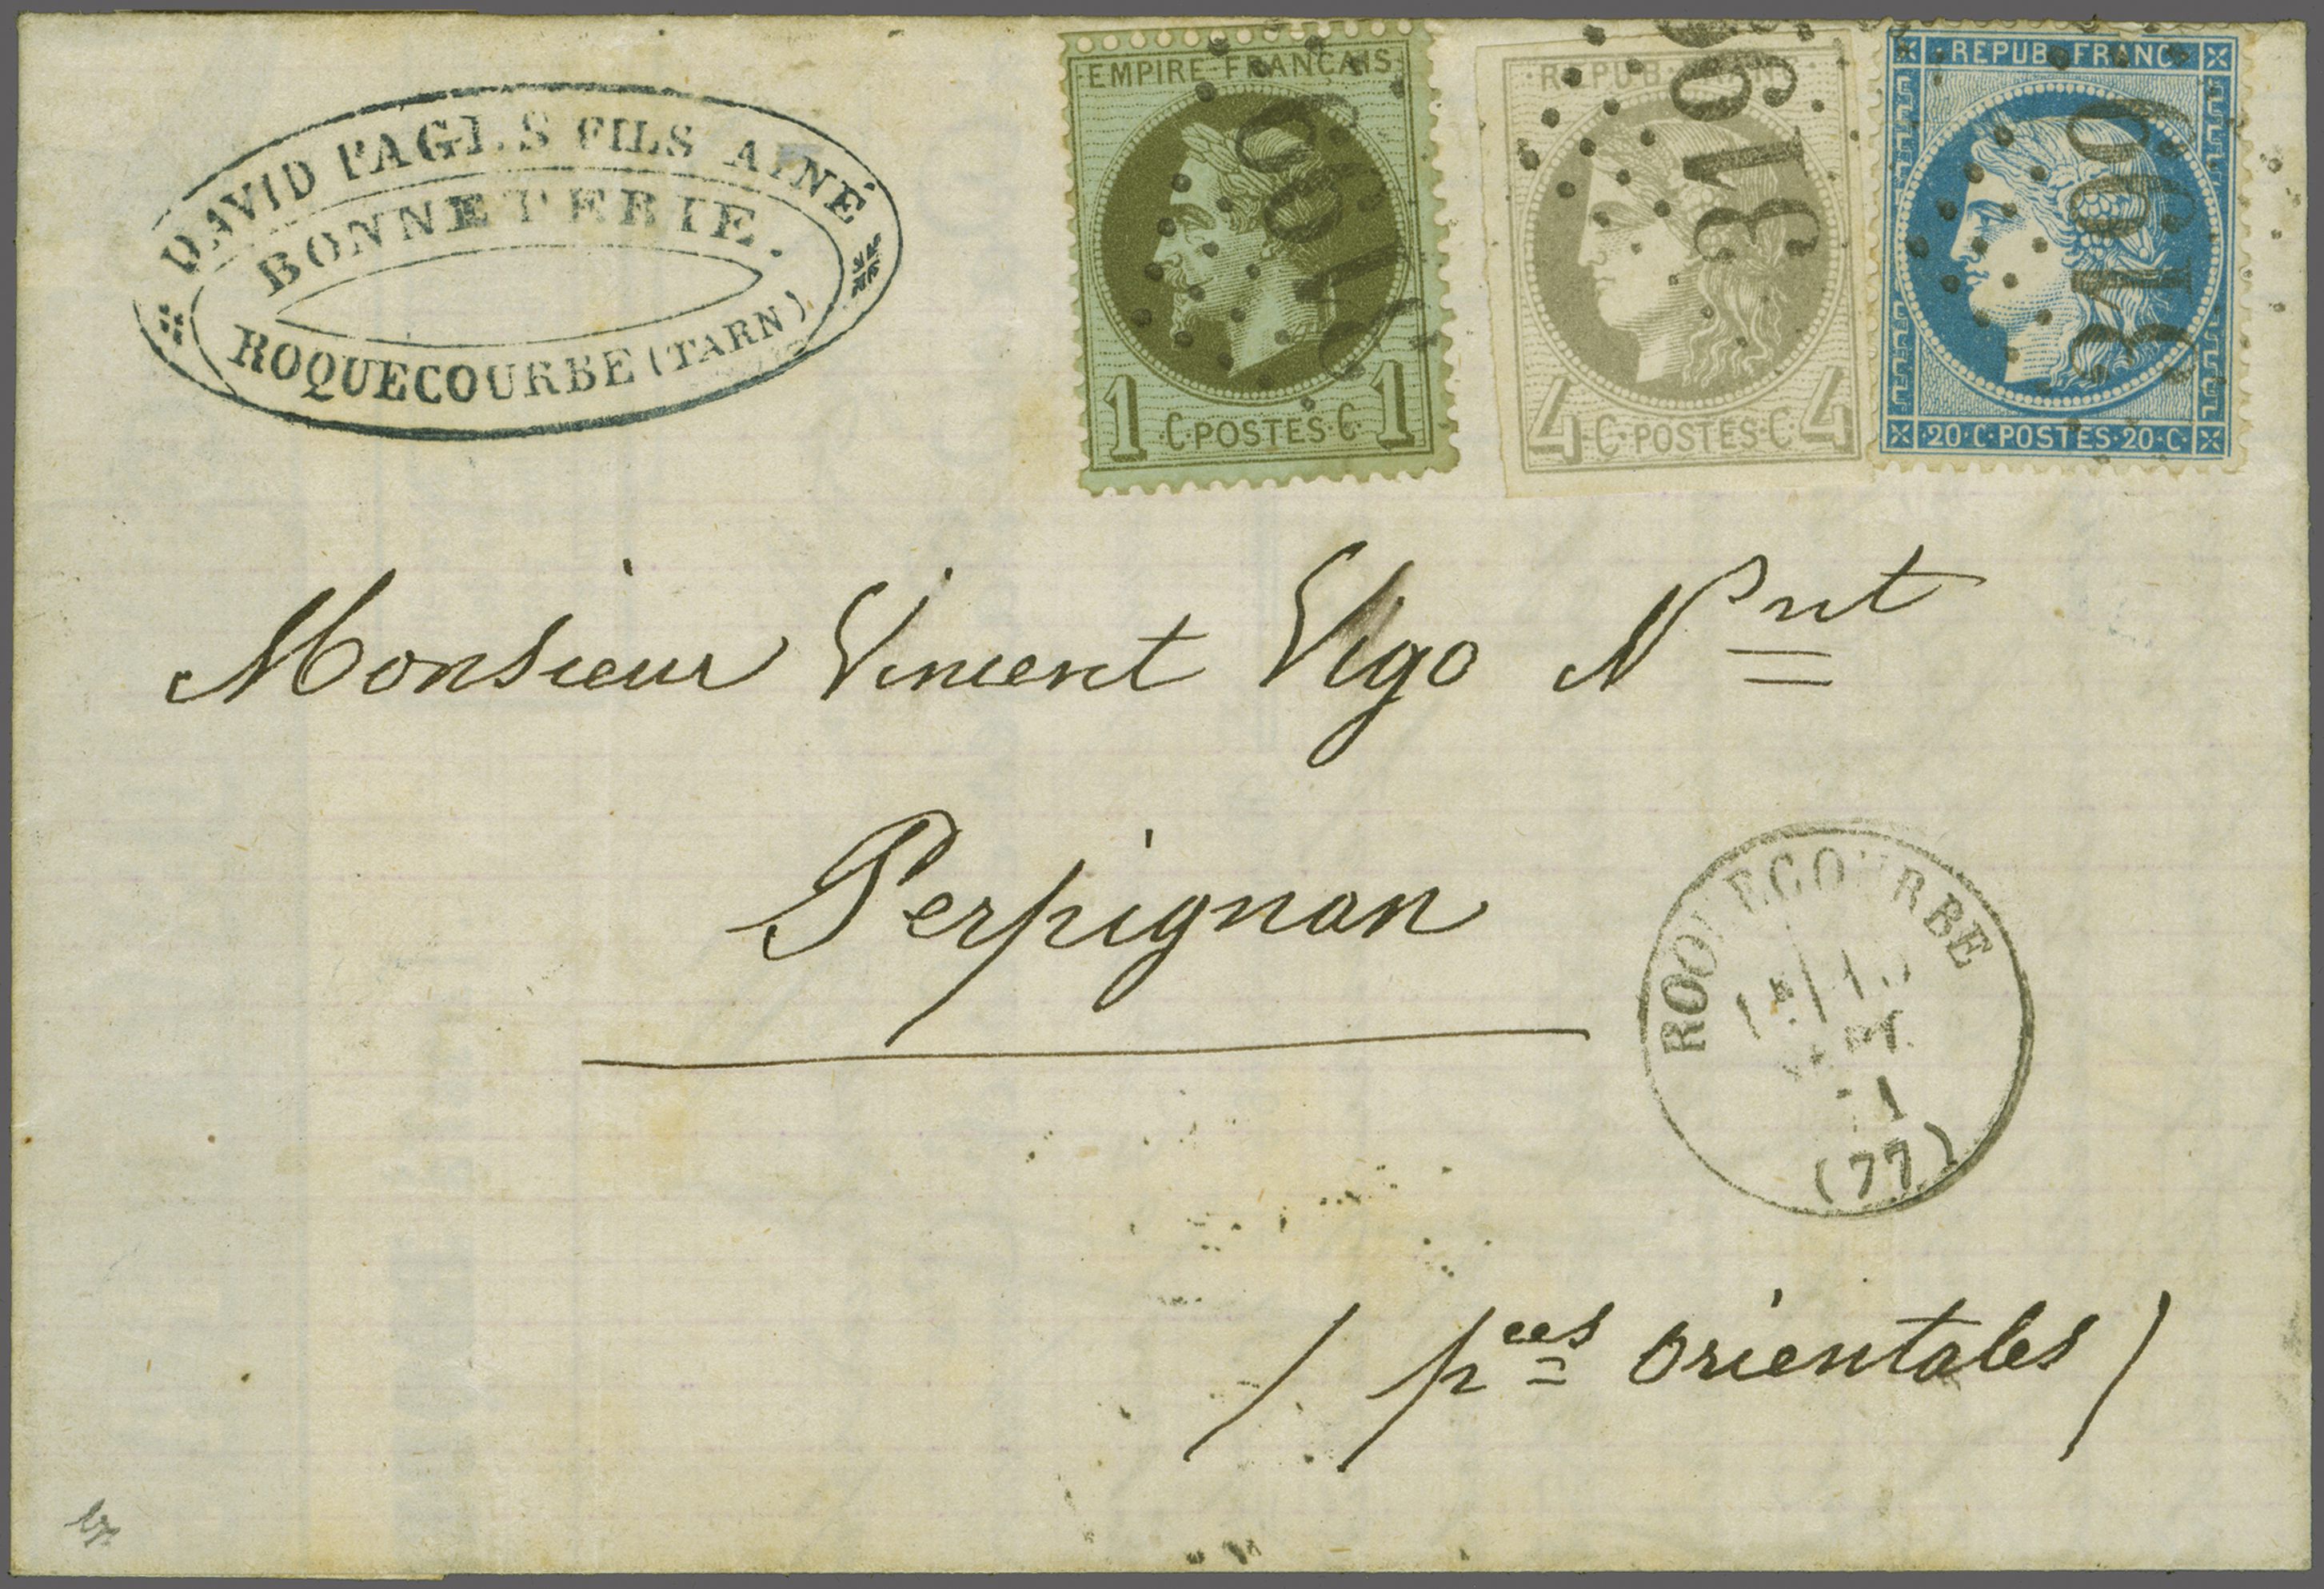 DAVID PAGES FILS AINÉ
BONNETERIE.
ROQUECOURBE (TARN)
EMPIRE FRANÇAIS
1 C·POSTES·C 1
REPUB. FRANC.
4 C·POSTES·C 4
319
REPUB. FRANC.
20·C·POSTES·20·C
3199
3199
Monsieur Vincent Vigo Nnt
Perpignan
ROQUECOURBE
(77)
/ pees orientales /